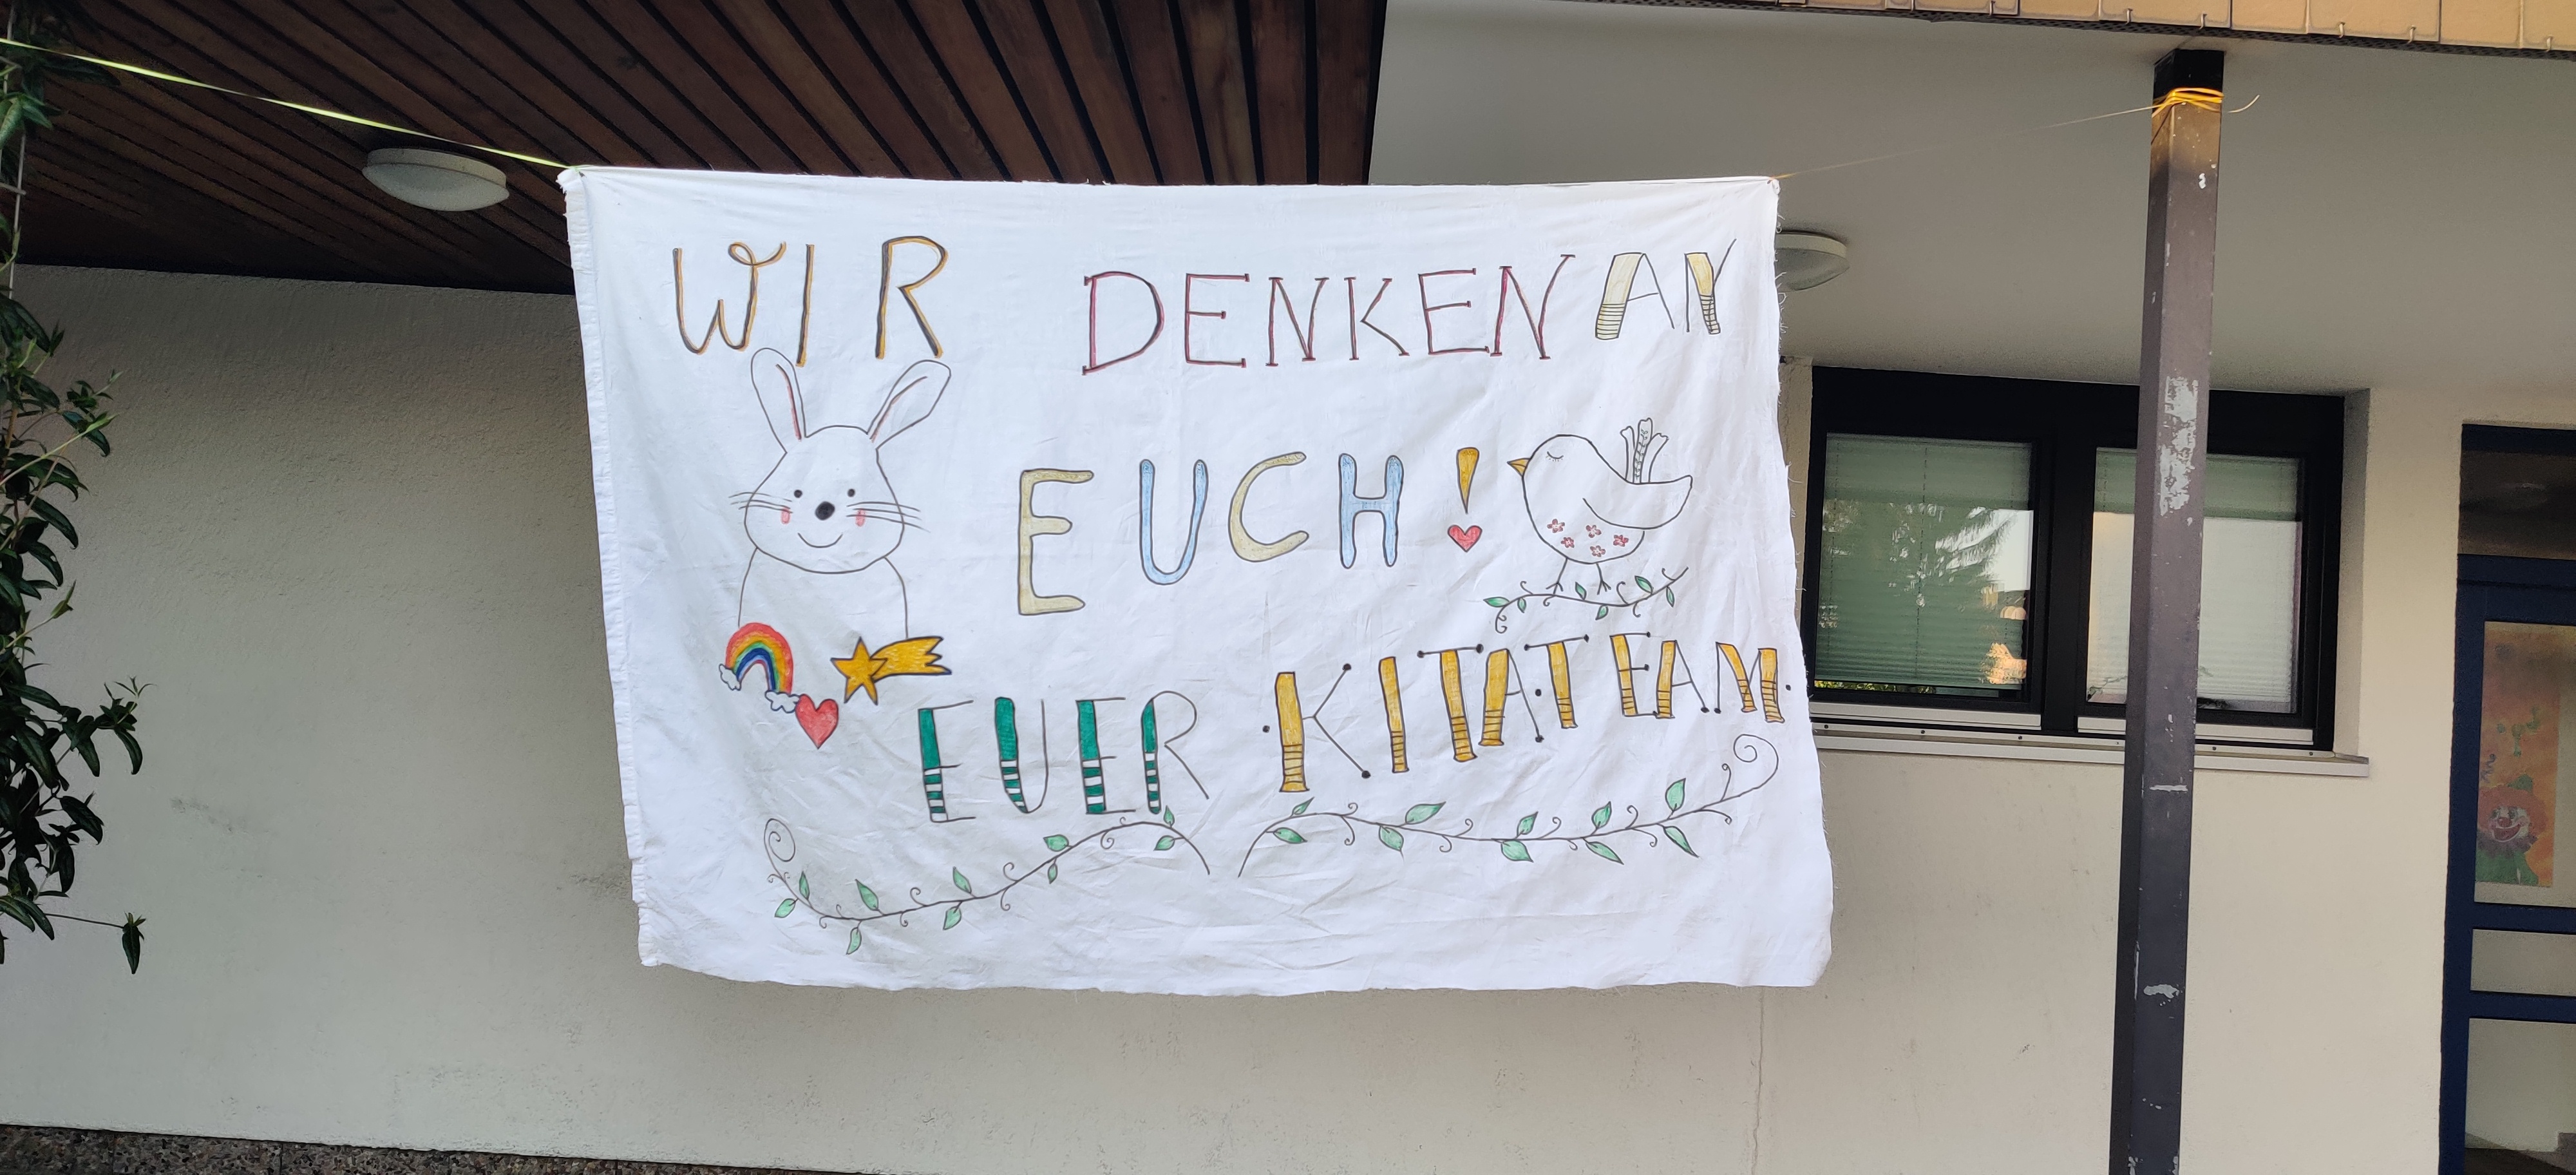 WIR DENKEN AN
EUCH!
EUER KITATEAM